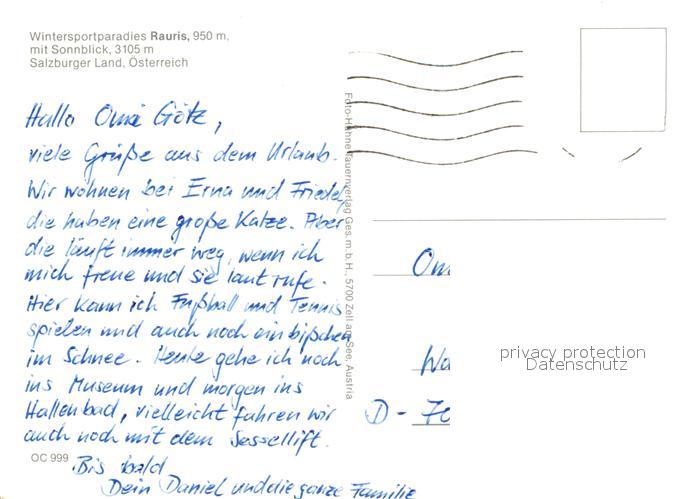 Wintersportparadies Rauris, 950 m,
mit Sonnblick, 3105 m
Salzburger Land, Österreich
Hallo Oma Götz,
viele Grüße aus dem Urlaub.
Wir wohnen bei Erna und Friedel,
die haben eine große Katze. Aber
die läuft immer weg, wenn ich
mich freue und sie laut rufe.
Hier kann ich Fußball und Tennis
spielen und auch noch ein bißchen
im Schnee. Heute gehe ich noch
ins Museum und morgen ins
Hallenbad, vielleicht fahren wir
auch noch mit dem Sessellift.
Bis bald
Dein Daniel und die ganze Familie
OC 999
Foto-Hühne Tauernverlag Ges. m. b. H., 5700 Zell am See, Austria
Om
Wa
D - 70
privacy protection
Datenschutz